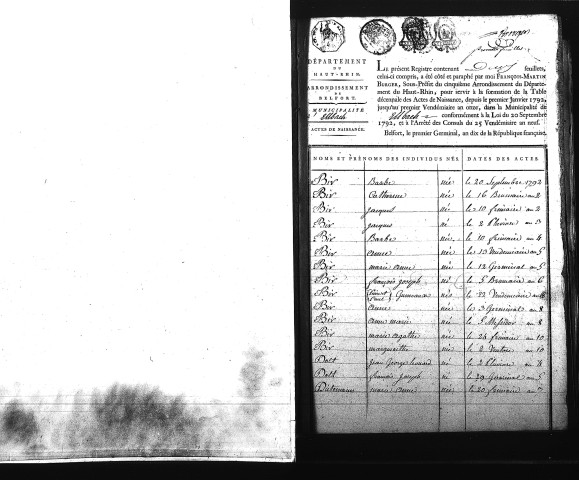 DÉPARTEMENT
DU
HAUT-RHIN.
ARRONDISSEMENT
DE
BELFORT.
MUNICIPALITÉ
d'Ellbach
ACTES DE NAISSANCE.
LE présent Registre contenant Deux feuillets,
celui-ci compris, a été coté et paraphé par moi FRANÇOIS-MARTIN
BURGER, Sous-Préfet du cinquième Arrondissement du Département
du Haut-Rhin, pour servir à la formation de la Table
décennale des Actes de Naissance, depuis le premier Janvier 1792,
jusqu'au premier Vendémiaire an onze, dans la Municipalité de
Ellbach conformément à la Loi du 20 Septembre
1792, et à l'Arrêté des Consuls du 25 Vendémiaire an neuf.
Belfort, le premier Germinal, an dix de la République française.
NOMS ET PRÉNOMS DES INDIVIDUS NÉS. DATES DES ACTES
Bir Barbe née le 20 Septembre 1792
Bir Catherine née le 16 Brumaire an 2
Bir jacques né le 10 frimaire an 2
Bir jacques né le 2 Pluviose an 3
Bir Barbe née le 10 frimaire an 4
Bir anne née le 13 Vendemiaire an 5
Bir marie anne née le 12 Germinal an 5
Bir françois joseph né le 5 Brumaire an 6
Bir Gumeaux nés le 22 Vendemiaire an 8
Bir anne née le 3 Germinal an 8
Bir anne marie née le 5 Messidor an 8
Bir marie agathe née le 24 frimaire an 10
Bir marguerithe née le 2 Ventose an 10
Dolt jean George né le 2 Pluviose an 4
Dolt francois joseph né le 29 Germinal an 5
marie anne née le 20 frimaire an 3